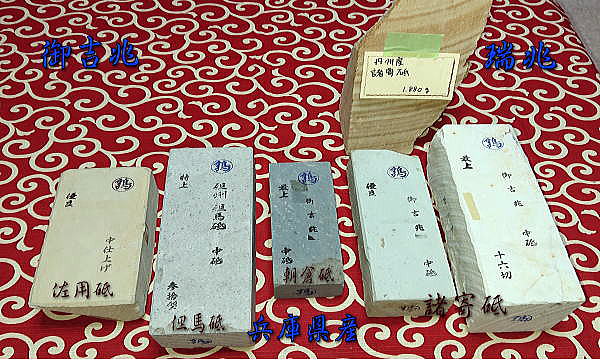 御吉兆
瑞兆
丹州産
1.880g
優良
中仕上げ
佐用砥
特上
但州但馬砥
中砥
但馬砥
最上
御吉兆
中砥
朝倉砥
優良
御吉兆
中砥
最上
御吉兆
中砥
十六切
諸寄砥
兵庫県産